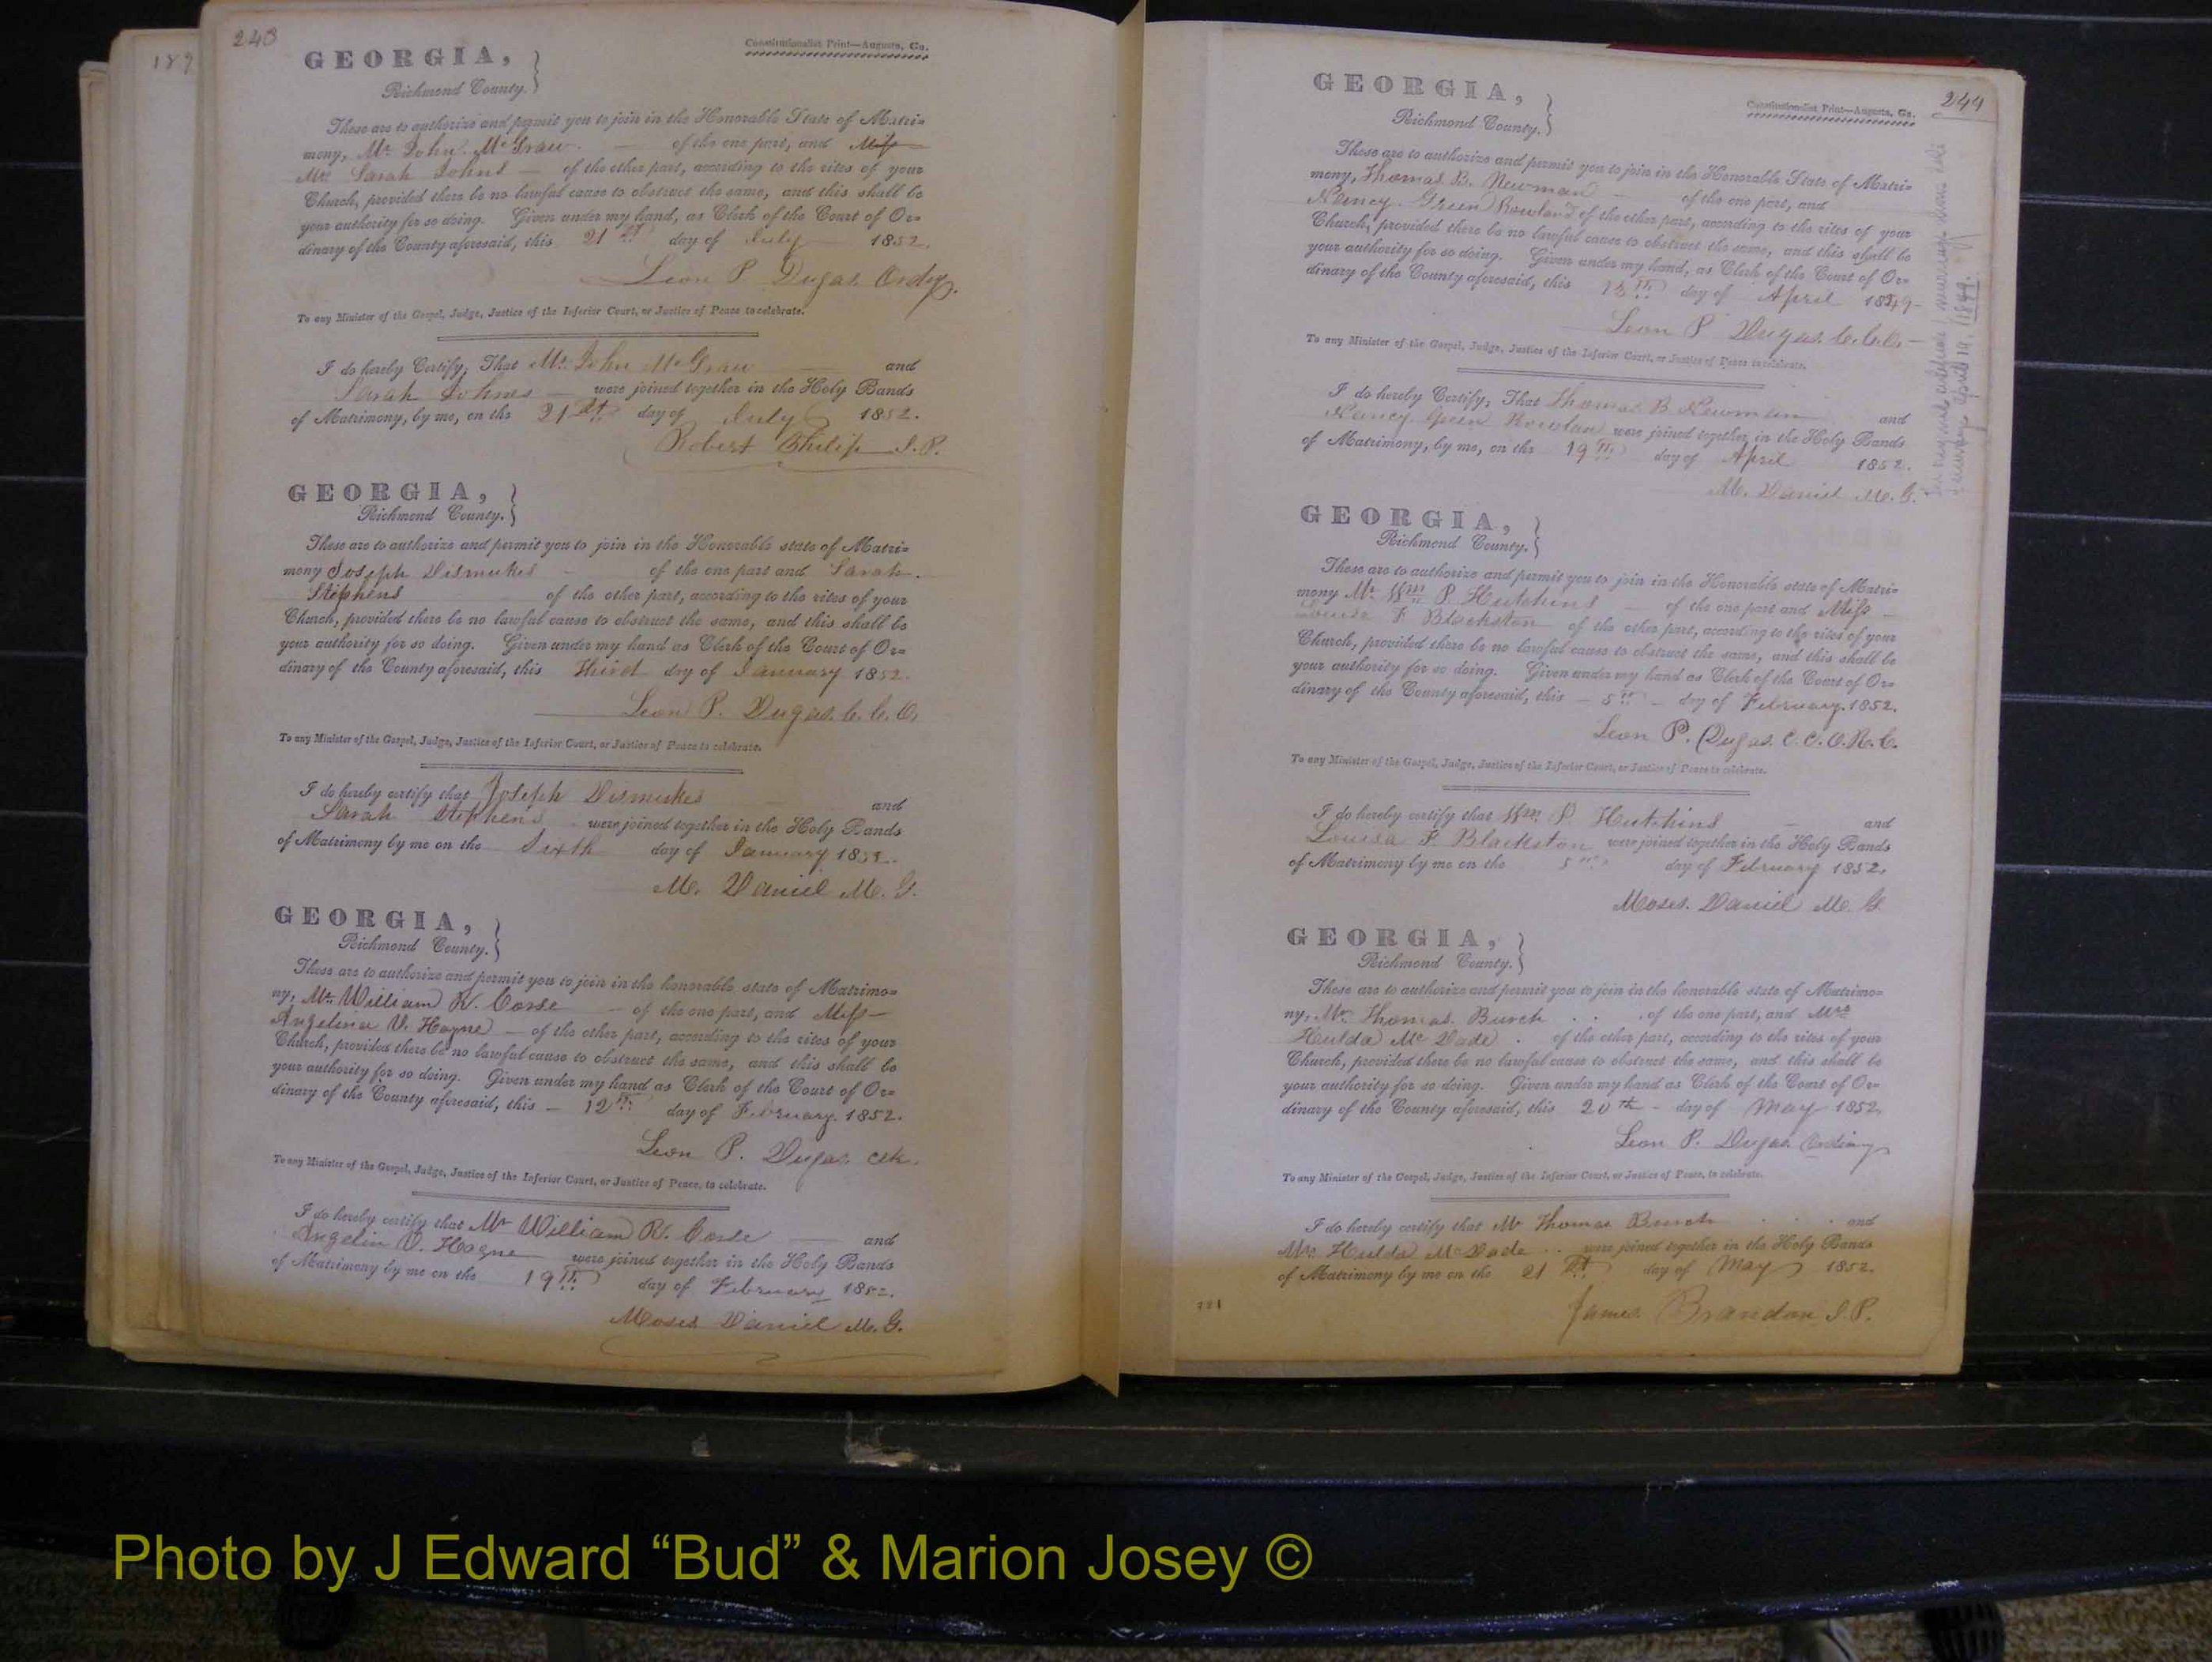 189
243
Constitutionalist Print—Augusta, Ga.
GEORGIA,
Richmond County.
These are to authorize and permit you to join in the Honorable State of Matri-
mony, Mr. John McGraw of the one part, and Miss
Mrs Sarah Johns of the other part, according to the rites of your
Church, provided there be no lawful cause to obstruct the same, and this shall be
your authority for so doing. Given under my hand, as Clerk of the Court of Or-
dinary of the County aforesaid, this 21st day of July 1852.
Leon P. Dugas Ordy.
To any Minister of the Gospel, Judge, Justice of the Inferior Court, or Justice of Peace to celebrate.
I do hereby Certify, That Mr. John McGraw and
Sarah Johns were joined together in the Holy Bands
of Matrimony, by me, on the 21st day of July 1852.
Robert Philip J.P.
GEORGIA,
Richmond County.
These are to authorize and permit you to join in the Honorable state of Matri-
mony Joseph Dismukes of the one part and Sarah
Stephens of the other part, according to the rites of your
Church, provided there be no lawful cause to obstruct the same, and this shall be
your authority for so doing. Given under my hand as Clerk of the Court of Or-
dinary of the County aforesaid, this Third day of January 1852.
Leon P. Dugas. C. C. O.
To any Minister of the Gospel, Judge, Justice of the Inferior Court, or Justice of Peace to celebrate.
I do hereby certify that Joseph Dismukes and
Sarah Stephens were joined together in the Holy Bands
of Matrimony by me on the Sixth day of January 1852.
M. Daniel M. G.
GEORGIA,
Richmond County.
These are to authorize and permit you to join in the honorable state of Matrimo-
ny, Mr. William R. Corse of the one part, and Miss
Angelina V. Hagne of the other part, according to the rites of your
Church, provided there be no lawful cause to obstruct the same, and this shall be
your authority for so doing. Given under my hand as Clerk of the Court of Or-
dinary of the County aforesaid, this 12th day of February. 1852.
Leon P. Dugas Clk.
To any Minister of the Gospel, Judge, Justice of the Inferior Court, or Justice of Peace, to celebrate.
I do hereby certify that Mr William R. Corse and
Angelin V. Hagne were joined together in the Holy Bands
of Matrimony by me on the 19th day of February 1852.
Moses Daniel M. G.
244
Constitutionalist Print—Augusta, Ga.
GEORGIA,
Richmond County.
These are to authorize and permit you to join in the Honorable State of Matri-
mony, Thomas B. Newman of the one part, and
Nancy Green Rowland of the other part, according to the rites of your
Church, provided there be no lawful cause to obstruct the same, and this shall be
your authority for so doing. Given under my hand, as Clerk of the Court of Or-
dinary of the County aforesaid, this day of April 1849
Leon P Dugas. C. C. O.
To any Minister of the Gospel, Judge, Justice of the Inferior Court, or Justice of Peace to celebrate.
I do hereby Certify, That Thomas B. Newman and
Nancy Green Rowlan were joined together in the Holy Bands
of Matrimony, by me, on the 19th day of April 1852.
M. Daniel M. G.
April 19, 1849.
GEORGIA,
Richmond County.
These are to authorize and permit you to join in the Honorable state of Matri-
mony Mr. Wm P Hutchins of the one part and Miss
Louisa F Blackston of the other part, according to the rites of your
Church, provided there be no lawful cause to obstruct the same, and this shall be
your authority for so doing. Given under my hand as Clerk of the Court of Or-
dinary of the County aforesaid, this 5th day of February. 1852.
Leon P. Dugas C. C. O. R. C.
To any Minister of the Gospel, Judge, Justice of the Inferior Court, or Justice of Peace to celebrate.
I do hereby certify that Wm P. Hutchins and
Louisa F. Blackston were joined together in the Holy Bands
of Matrimony by me on the 5th day of February 1852.
Moses Daniel M. G.
GEORGIA,
Richmond County.
These are to authorize and permit you to join in the honorable state of Matrimo-
ny, Mr Thomas Burch of the one part, and Mrs
Hulda McDade of the other part, according to the rites of your
Church, provided there be no lawful cause to obstruct the same, and this shall be
your authority for so doing. Given under my hand as Clerk of the Court of Or-
dinary of the County aforesaid, this 20th day of May 1852
Leon P. Dugas Ordinary
To any Minister of the Gospel, Judge, Justice of the Inferior Court, or Justice of Peace, to celebrate.
I do hereby certify that Mr Thomas Burch and
Mrs Hulda McDade were joined together in the Holy Bands
of Matrimony by me on the 21st day of May 1852.
James Brandon J. P.
Photo by J Edward “Bud” & Marion Josey ©